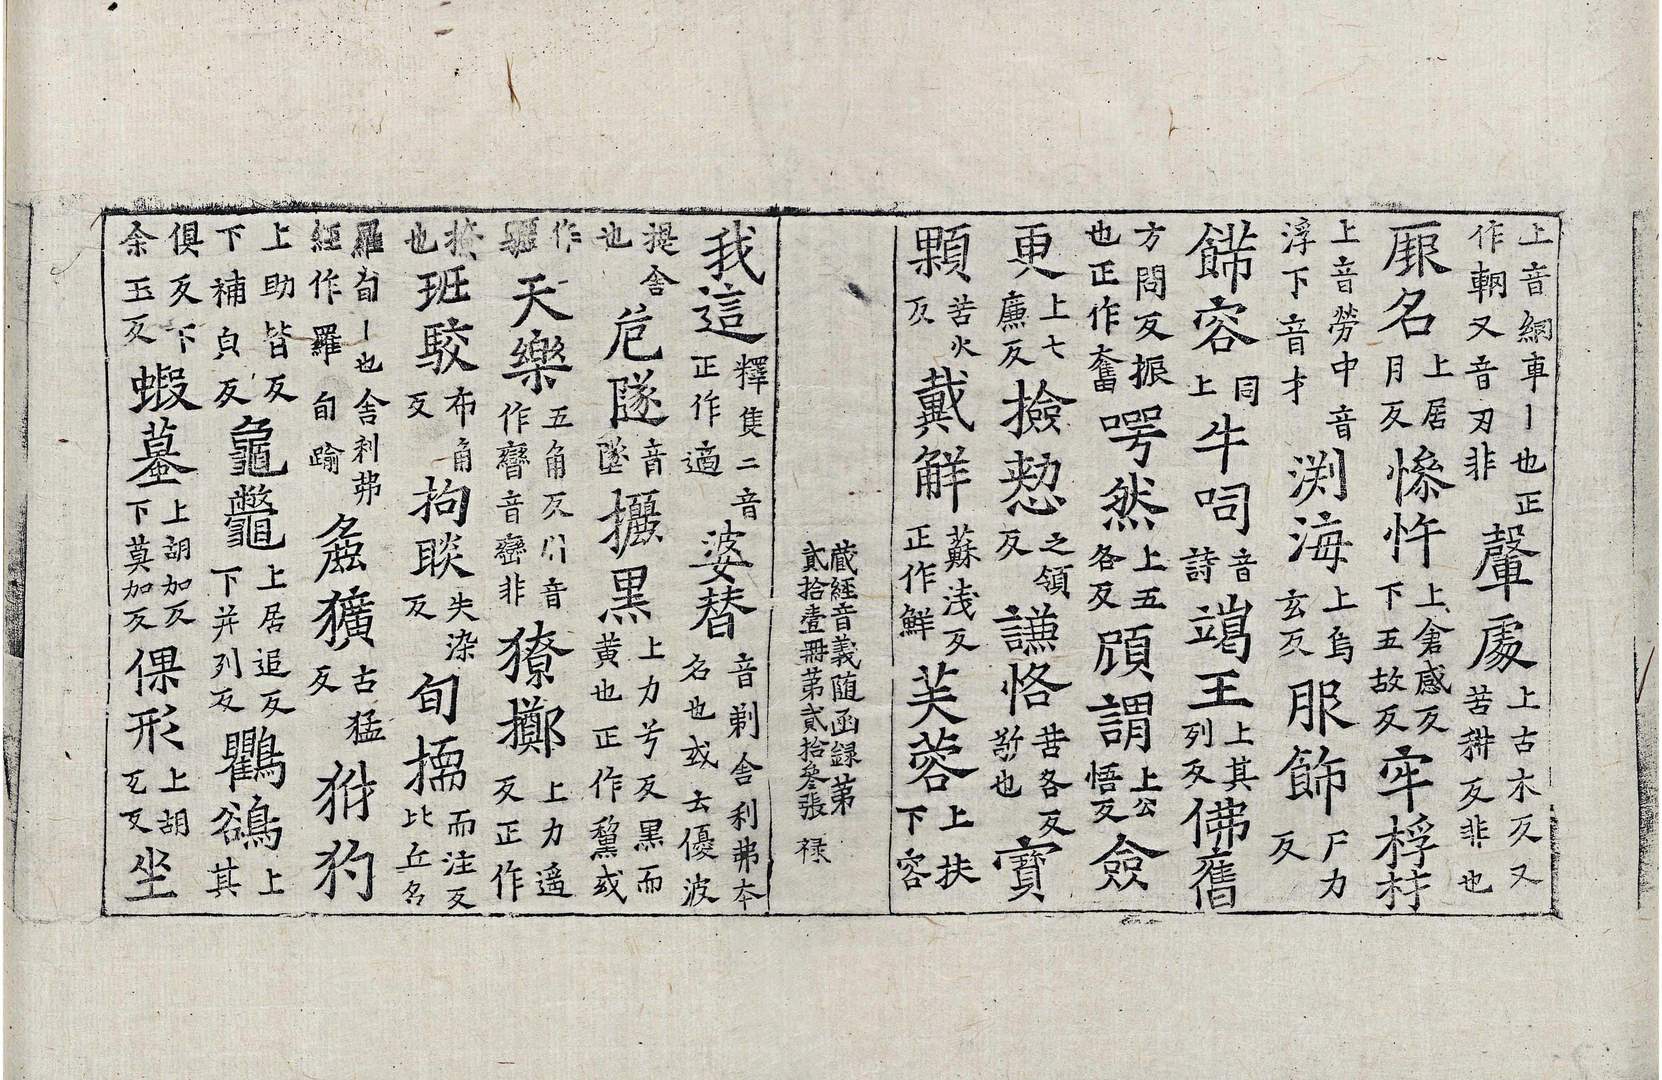 上音網車丨也正作輞又音刃非 鞤處 上古木反又苦耕反非也
𠩄名 上居月反 慘忤 上倉感反下五故反 牢桴材
上音勞中音浮下音才 渕海 上烏玄反 服飾 尸力反
餙容 同上 牛呞 音詩 竭王 上其列反 佛舊
方問反振也正作奮 咢然 上五各反 頋謂 上公悟反 僉
更 上七廉反 撿愸 之領反 謙恪 苦各反敬也 寶
顆 苦火反 戴鮮 蘇淺反正作鮮 芙蓉 上扶下容
藏經音義随函録第貳拾壹冊第貳拾叄張 禄
我這 釋隻二音正作適 婆替 音剃舍利弗本名也或云優波
提舍也 危隧 音墜 攦黒 上力兮反黒而黄也正作黧或
作𪐝 天樂 五角反川音作㝈音巒非 獠擲 上力遥反正作
㩧也 班駮 布角反 拘睒 失染反 旬擩 而注反比丘名
羅旬丨也舍利弗經作羅旬踰 麁獷 古猛反 犲狗
上助皆反下補貞反 龜鼈 上居追反下并列反 鸜鵒 上其
俱反下余玉反 蝦蟇 上胡加反下莫加反 倮形 上胡瓦反 坐